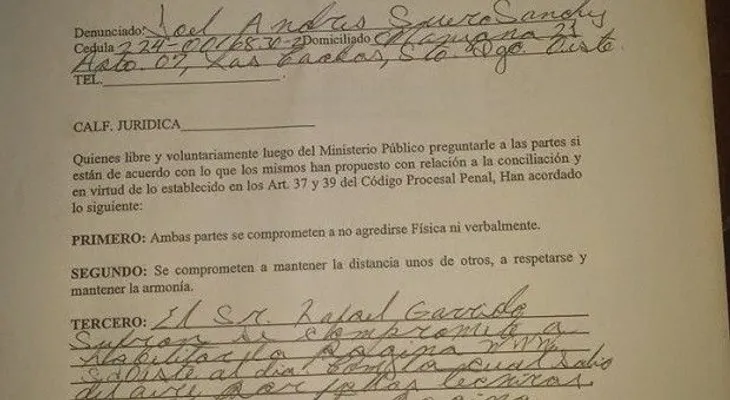 Denunciado: Joel Andres Suero Sanchez
Cedula 224-0016830-2 Domiciliado C/ Manzana 21
Apto. 07, Las Caobas, Sto. Dgo. Oeste.
TEL.
CALF. JURIDICA
Quienes libre y voluntariamente luego del Ministerio Público preguntarle a las partes si
están de acuerdo con lo que los mismos han propuesto con relación a la conciliación y
en virtud de lo establecido en los Art. 37 y 39 del Código Procesal Penal, Han acordado
lo siguiente:
PRIMERO: Ambas partes se comprometen a no agredirse Física ni verbalmente.
SEGUNDO: Se comprometen a mantener la distancia unos de otros, a respetarse y
mantener la armonía.
TERCERO: El Sr. Rafael Garrido
se compromete a
la pagina WWW.
Sdoeste al dia. com la cual salio
del aire por fallas tecnicas